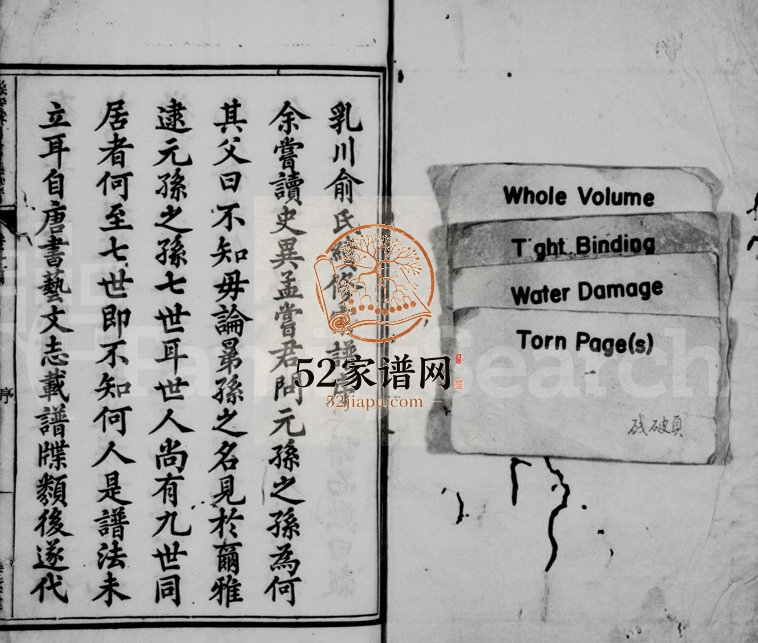 乳川俞氏續修宗譜序
余嘗讀史異孟嘗君問元孫之孫為何
其父曰不知毋論晜孫之名見於爾雅
逮元孫之孫七世耳世人尚有九世同
居者何至七世即不知何人是譜法未
立耳自唐書藝文志載譜牒類後遂代
序
Whole Volume
Tight Binding
Water Damage
Torn Page(s)
残破頁
52家谱网
52jiapu.com
FamilySearch